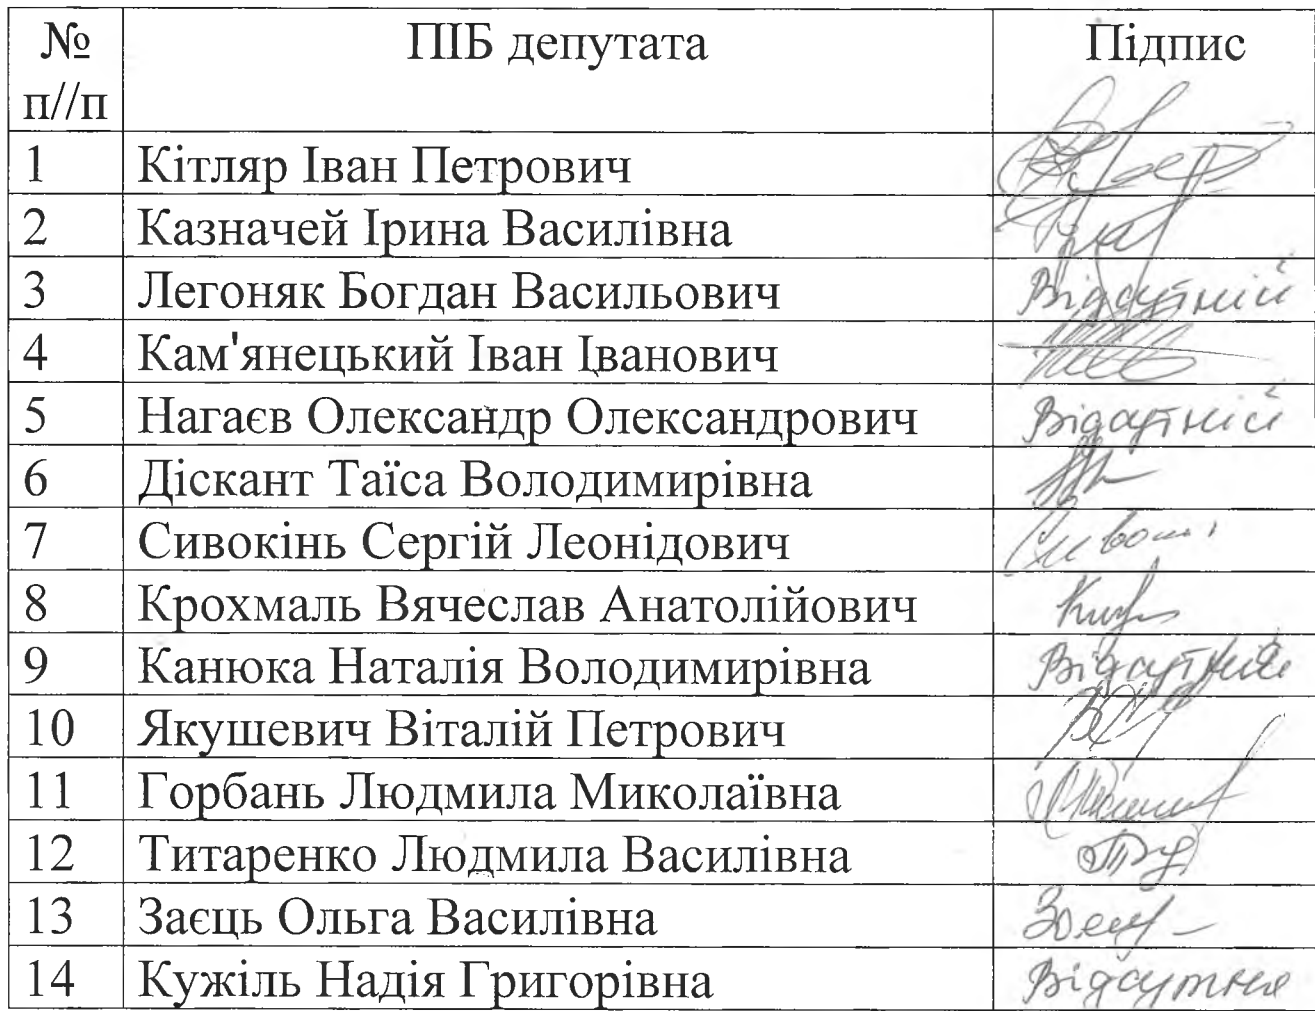 № п//п ПІБ депутата Підпис
1 Кітляр Іван Петрович
2 Казначей Ірина Василівна
3 Легоняк Богдан Васильович Відсутній
4 Кам'янецький Іван Іванович
5 Нагаєв Олександр Олександрович Відсутній
6 Діскант Таїса Володимирівна
7 Сивокінь Сергій Леонідович
8 Крохмаль Вячеслав Анатолійович
9 Канюка Наталія Володимирівна
10 Якушевич Віталій Петрович
11 Горбань Людмила Миколаївна
12 Титаренко Людмила Василівна
13 Заєць Ольга Василівна
14 Кужіль Надія Григорівна Відсутня